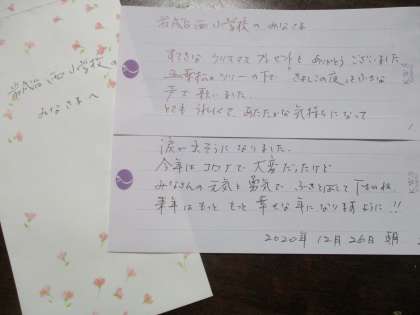 西小学校の
みなさまへ
西小学校の みなさま
すてきな クリスマス プレゼントを ありがとう ございました
ツリーの下で きよしこの夜を小さな
声で歌いました。
とても うれしくて、あたたかな 気持ちになって
涙がでそうになりました。
今年は コロナで 大変だったけど
みなさんの 元気と 勇気で ふきとばして 下さいね
来年は もっと もっと 幸せな 年に なりますように!!
2020年 12月 26日 朝